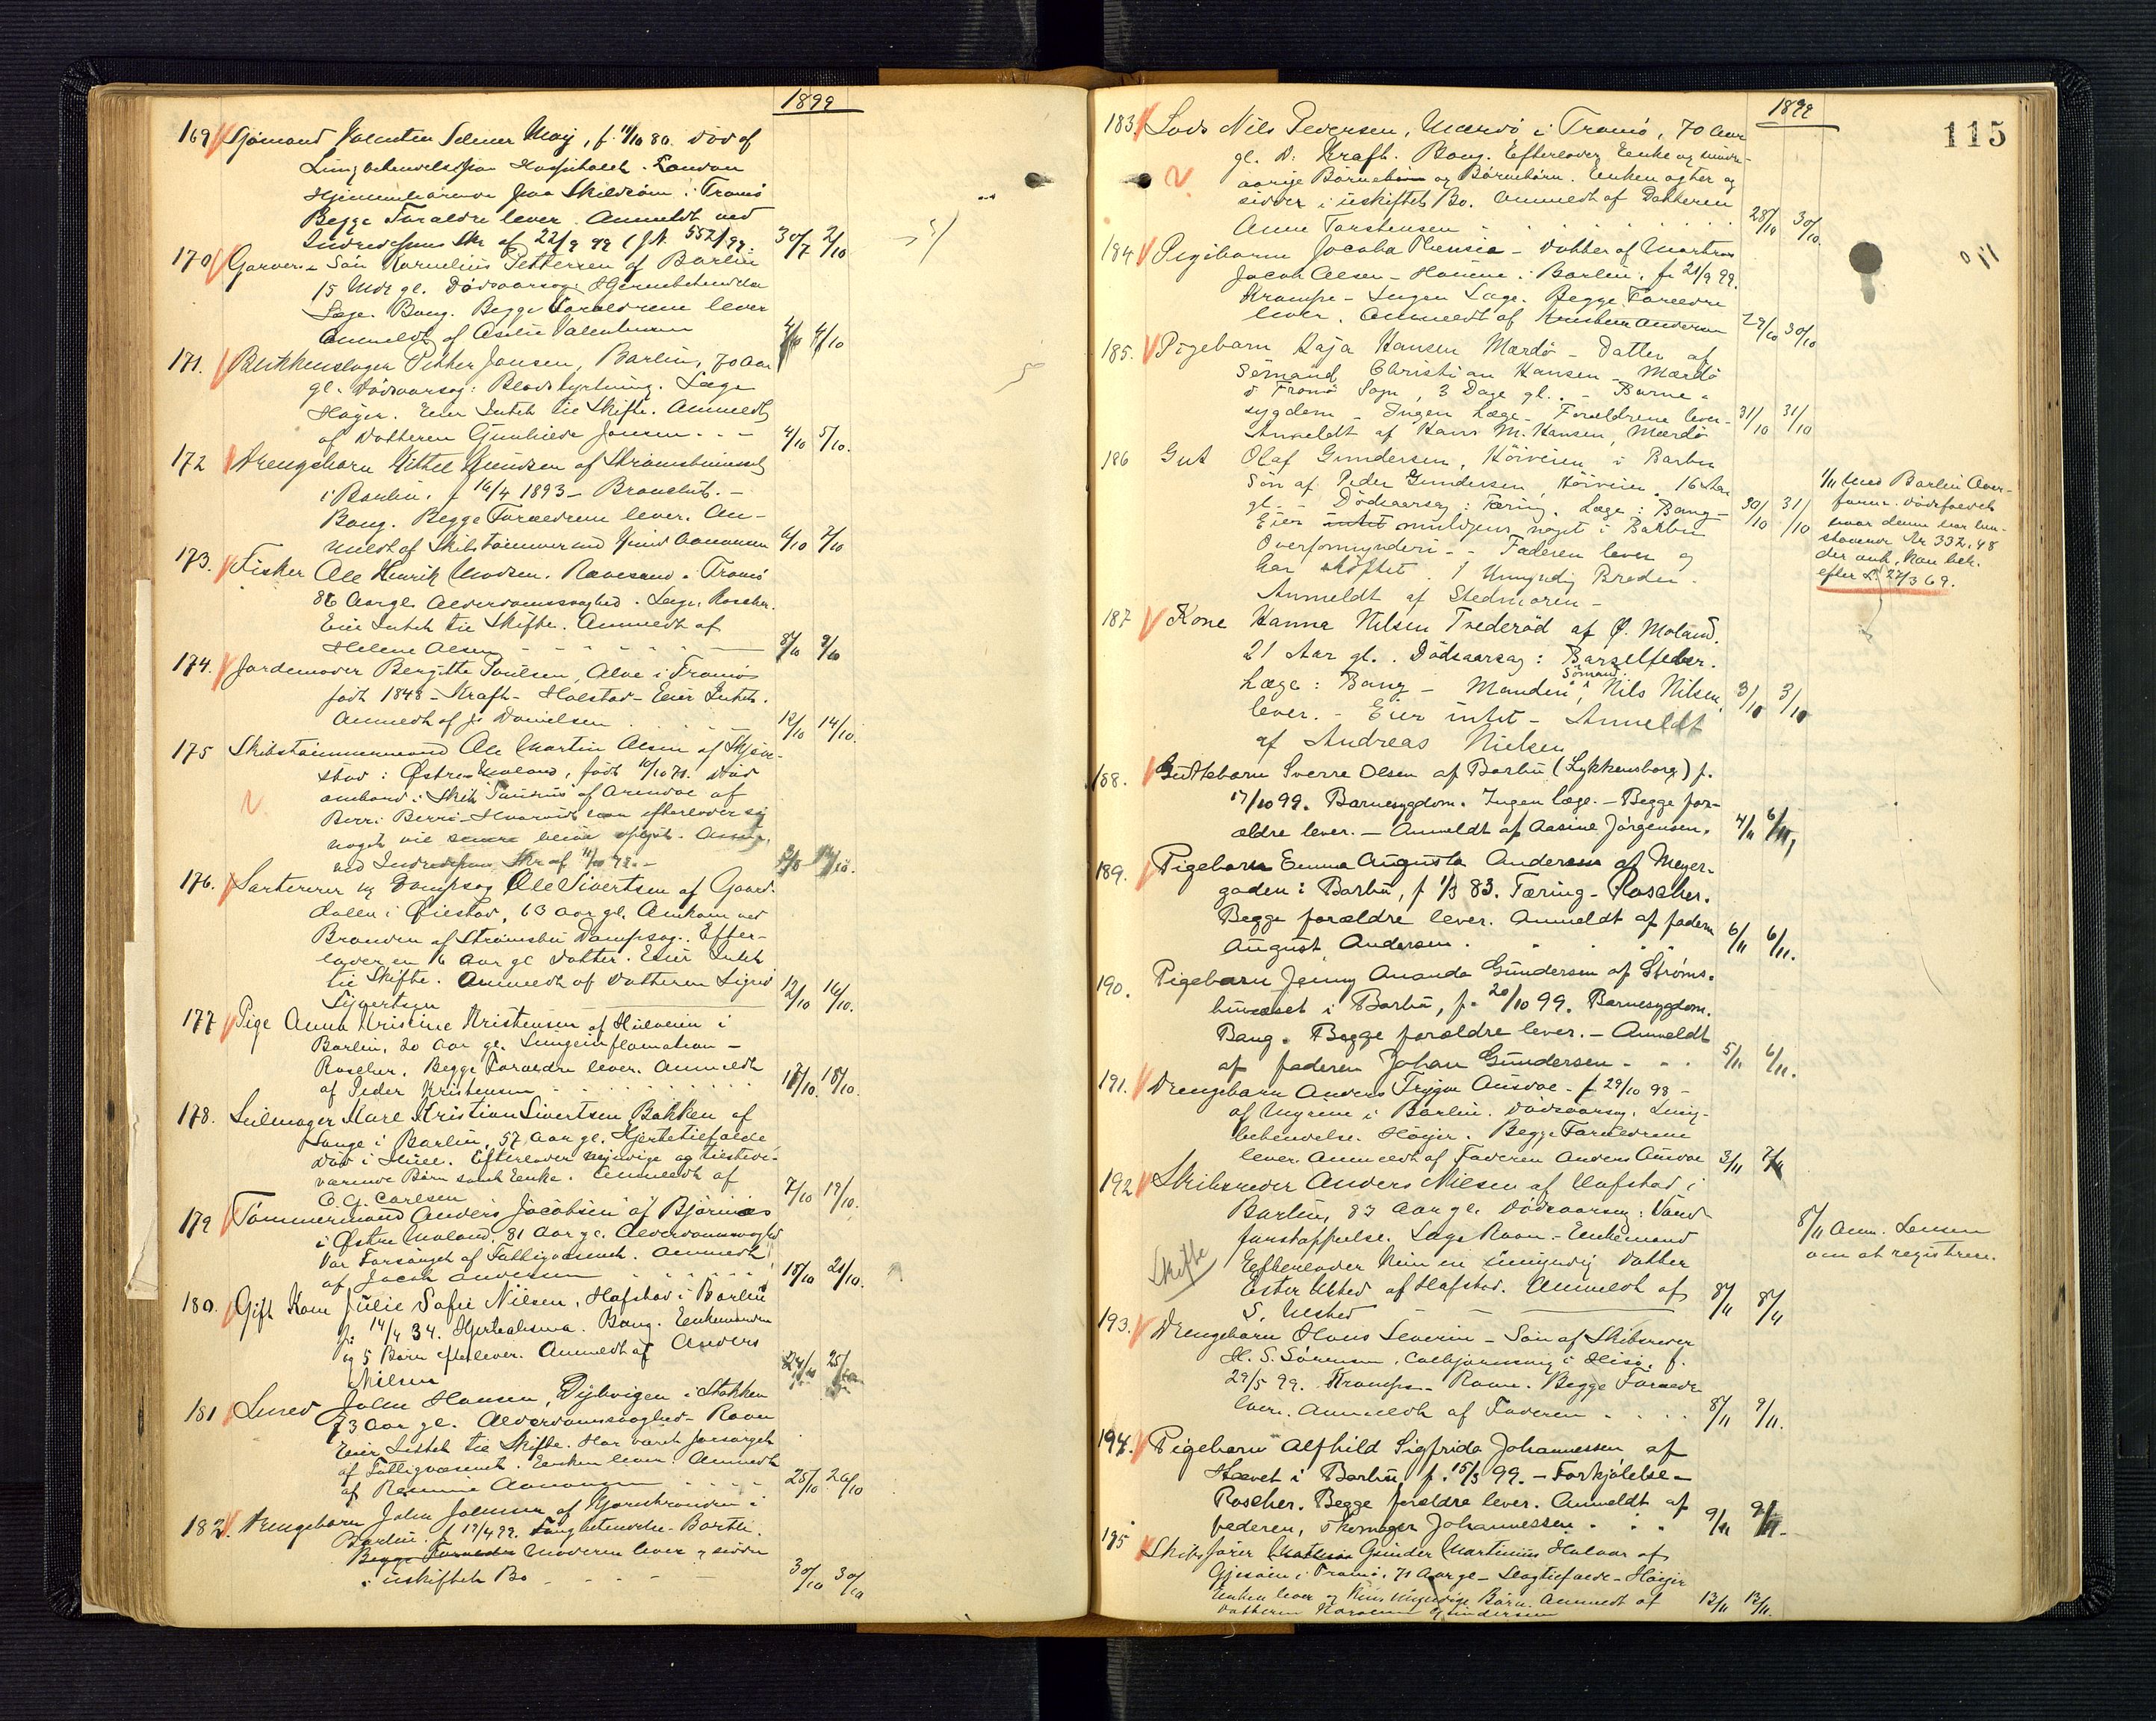 1899
169 Sjømand Valentin Selmer May, f. 11/10 80. Død af
Lungbetendelse paa Hospitalet London
Hjemmehørende paa Skilsøen i Tromø
Begge Foraldre lever. Anmeldt ved
Indredepms Skr af 22/9 99 (J.N. 552/99. 30/7 2/10
170 Garver Søn Kornelius Pettersen af Barbu
15 Mdr gl. Dødsaarsag: Hjernebetendelse
Læge. Bang. Begge Forældrene lever
Anmeldt af 4/10 4/10
171. Blikkenslager Petter Jansen, Barbu, 70 Aar
gl. Dødsaarsag: Blodstyrtning. Læge
Høyer. Eier Intet til Skifte. Anmeldt
af Datteren Gunhilde Jansen 4/10 5/10.
172 Drengebarn Kittel Knudsen af Strømsbuneset
i Barbu. f 16/4 1893 -
Bang. Begge Forældrene lever. An-
meldt af Skibstømmermand Knud Aanonsen 6/10 7/10
173. Fisker Ole Henrik Madsen. Ravesand i Tromø
86 Aar gl. Alderdomssvaghed. Læge Roscher.
Eier Intet til Skifte. Anmeldt af
Helene Olsen 8/10 9/10
174. Jordemoder Bergitte Poulsen, Alve i Tromø
født 1848 - Kræft - Holstad - Eier Intet.
Anmeldt af Js Danielsen 12/10 14/10.
175 Skibstømmermand Ole Martin Olsen af
stad i Østre Moland, født 10/10 71. død
ombord i Skib "Taurus" af Arendal af
Berri Berri - Hvorvidt han efterlader sig
noget vil senere blive opgit. Anm.
ved Indredepms Skr af 11/10 99. -
176. Sorterer og Dampsag Ole Sivertsen af Gaard-
dalen i Øiestad, 63 Aar gl. Omkom ved
Branden af Strømsbu Dampsag. Efter-
lader en 16 Aar gl Datter. Eier Intet
til Skifte. Anmeldt af Datteren Sigrid
Sivertsen 12/10 16/10.
177 Pige Anna Kristine Kristensen af i
Barbu, 20 Aar gl. Lungeinflamation -
Roscher. Begge Forældre lever. Anmeldt
af Peder Kristensen 18/10. 18/10.
178. Seilmager Karl Kristian Sivertsen Bakken af
Lange i Barbu, 57 Aar gl. Hjertetilfælde
død i Hull. Efterlader myndige og tilstede-
værende Børn samt Enke. Anmeldt af
C. G. Carlsen 7/10 19/10.
179 Tømmermand Anders Jacobsen af Bjørnnes
i Østre Moland, 81 Aar gl. Alderdomssvaghed
Var Forsørget af Fattigvæsenet. Anmeldt
af Jacob Andersen 18/10 21/10.
180. Gift Kone Julie Sofie Nilsen, Hafstad i Barbu
f. 14/4 34. Bang. Enkemanden
og 5 Børn efterlever. Anmeldt af Anders
Nilsen 24/10 25/10
181 Smed John Hansen, Dybvigen i Stokken
73 Aar gl. Alderdomssvaghed - Roan
Eier Intet til Skifte. Har været forsørget
af Fattigvæsenet. Enken lever. Anmeldt
af Aanonsen 25/10 26/10
182. Drengebarn John Johnsen af i
Barbu f 17/4 99. Lungbetendelse - Barth.
Begge Forældre Moderen lever og sidder
i uskiftet Bo 30/10 30/10
1899
115
183. Lods Nils Pedersen, Mærdø i Tromø, 70 Aar
gl. D: Kræft. Bang. Efterlader Enke og minde-
aarige Børnebørn og Børnebørn. Enken agter og
sidder i uskiftet Bo. Anmeldt af Datteren
Anne Torstensen 28/10 30/10.
184 Pigebarn Jocoba - Datter af
Jacob Olsen - i Barbu, f. 21/9 99.
Krampe - Ingen Læge. Begge Forældre
lever. Anmeldt af Andersen 29/10 30/10
185. Pigebarn Kaja Hansen Mærdø - Datter af
Sømand Christian Hansen - Mærdø
i Tromø Sogn, 3 Dage gl. - Barne-
sygdom - Ingen Læge. Forældrene lever-
Anmeldt af Hans M. Hansen, Mærdø 31/10 31/10
186 Gut Olaf Gundersen, Høiveien i Barbu
Søn af Peder Gundersen, Høiveien, 16 Aar
gl. - Dødsaarsag: Tæring. Læge: Bang -
Eier intet muligens noget i Barbu
Overformynderi. - Faderen lever og
har skiftet. 1 Umyndig Broder.
Anmeldt af Stedmoren - 30/10 31/10
1/11 Barbu Over-
form. dødsfaldet
hvor denne har inde-
staaende Kr 332,48
der ant. kan beh.
efter L. 27/3 69.
187 Kone Hanna Nilsen Trederød af Ø. Moland.
21 Aar gl. Dødsaarsag: Barselfeber.
Læge: Bang - Manden, Sømand Nils Nilsen,
lever. - Eier intet - Anmeldt
af Andreas Nielsen 3/10 3/10
188. Guttebarn Sverre Olsen af Barbu (Lykkensborg) f.
17/10 99. Barnesygdom. Ingen læge. - Begge for-
ældre lever. - Anmeldt af Aasine Jørgensen. 4/11 6/11
189. Pigebarn Emma Augusta Andersen af Meyer-
gaden i Barbu, f 1/3 83. Tæring - Roscher.
Begge forældre lever. Anmeldt af faderen
August Andersen. 6/11 6/11.
190. Pigebarn Jenny Amanda Gundersen af Strøms-
buneset i Barbu, f. 20/10 99. Barnesygdom.
Bang. Begge forældre lever. - Anmeldt
af faderen Johan Gundersen 5/11 6/11.
191. Drengebarn Anders Trygve Ausdal - f 29/10 98 -
af Myrene i Barbu. Dødsaarsag. Lung-
betendelse. Høyer. Begge Forældrene
lever. Anmeldt af Faderen Anders Ausdal 3/11 7/11
192 Skibsreder Anders Nilsen af Hafstad i
Barbu, 83 Aar gl. Dødsaarsag: Vand
forstoppelse. Læge Roan. - Enkemand
Skifte Efterlader Kun en umyndig Datter
Ester Ugsted af Hafstad. Anmeldt af
S. Ugsted 8/11 8/11
8/11 Anm. Lensm
om at registrere.
193. Drengebarn Hans Severin - Søn af Skibsreder
H. S. Sørensen, Colbjørnsvig i Hisø, f.
29/5 99. Krampe - Roan. Begge Forældre
lever. Anmeldt af Faderen 8/11 9/11.
194. Pigebarn Alfhild Sigfrida Johannessen af
i Barbu, f. 15/3 99. - Forkjølelse -
Roscher. Begge forældre lever. Anmeldt af
faderen, skomager Johannessen 9/11 9/11.
195 Skibsfører Gunder Martinius Halvor af
Gjesøen i Tromø, 71 Aar gl - Slagtilfælde - Høyer
Enken lever og Kun Myndige Børn. Anmeldt af
Datteren Gundersen 13/11 13/11.